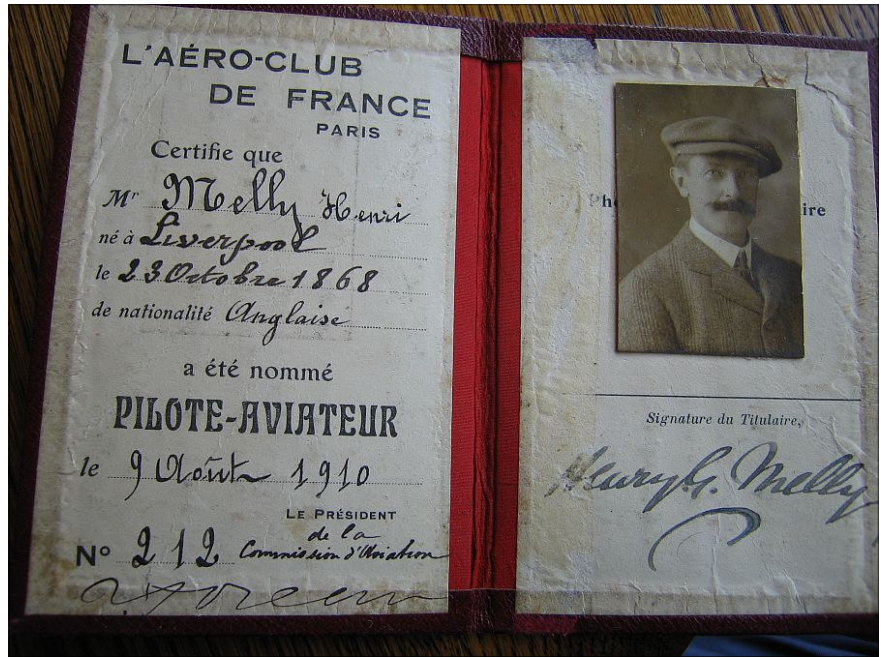 L'AÉRO-CLUB
DE FRANCE
PARIS
Certifie que
Mr Melly Henri
né à Liverpool
le 23 Octobre 1868
de nationalité Anglaise
a été nommé
PILOTE-AVIATEUR
le 9 Août 1910
LE PRÉSIDENT
de la
Commission d'Aviation
No 212
Ph
ire
Signature du Titulaire,
Henry G. Melly